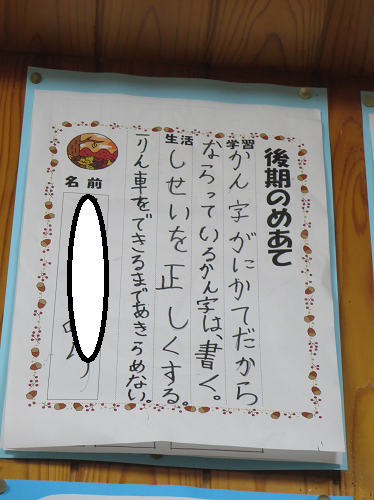 後期のめあて
学習
かん字がにがてだから
ならっているかん字は、書く。
生活
しせいを正しくする。
一りん車をできるまであきらめない。
名前